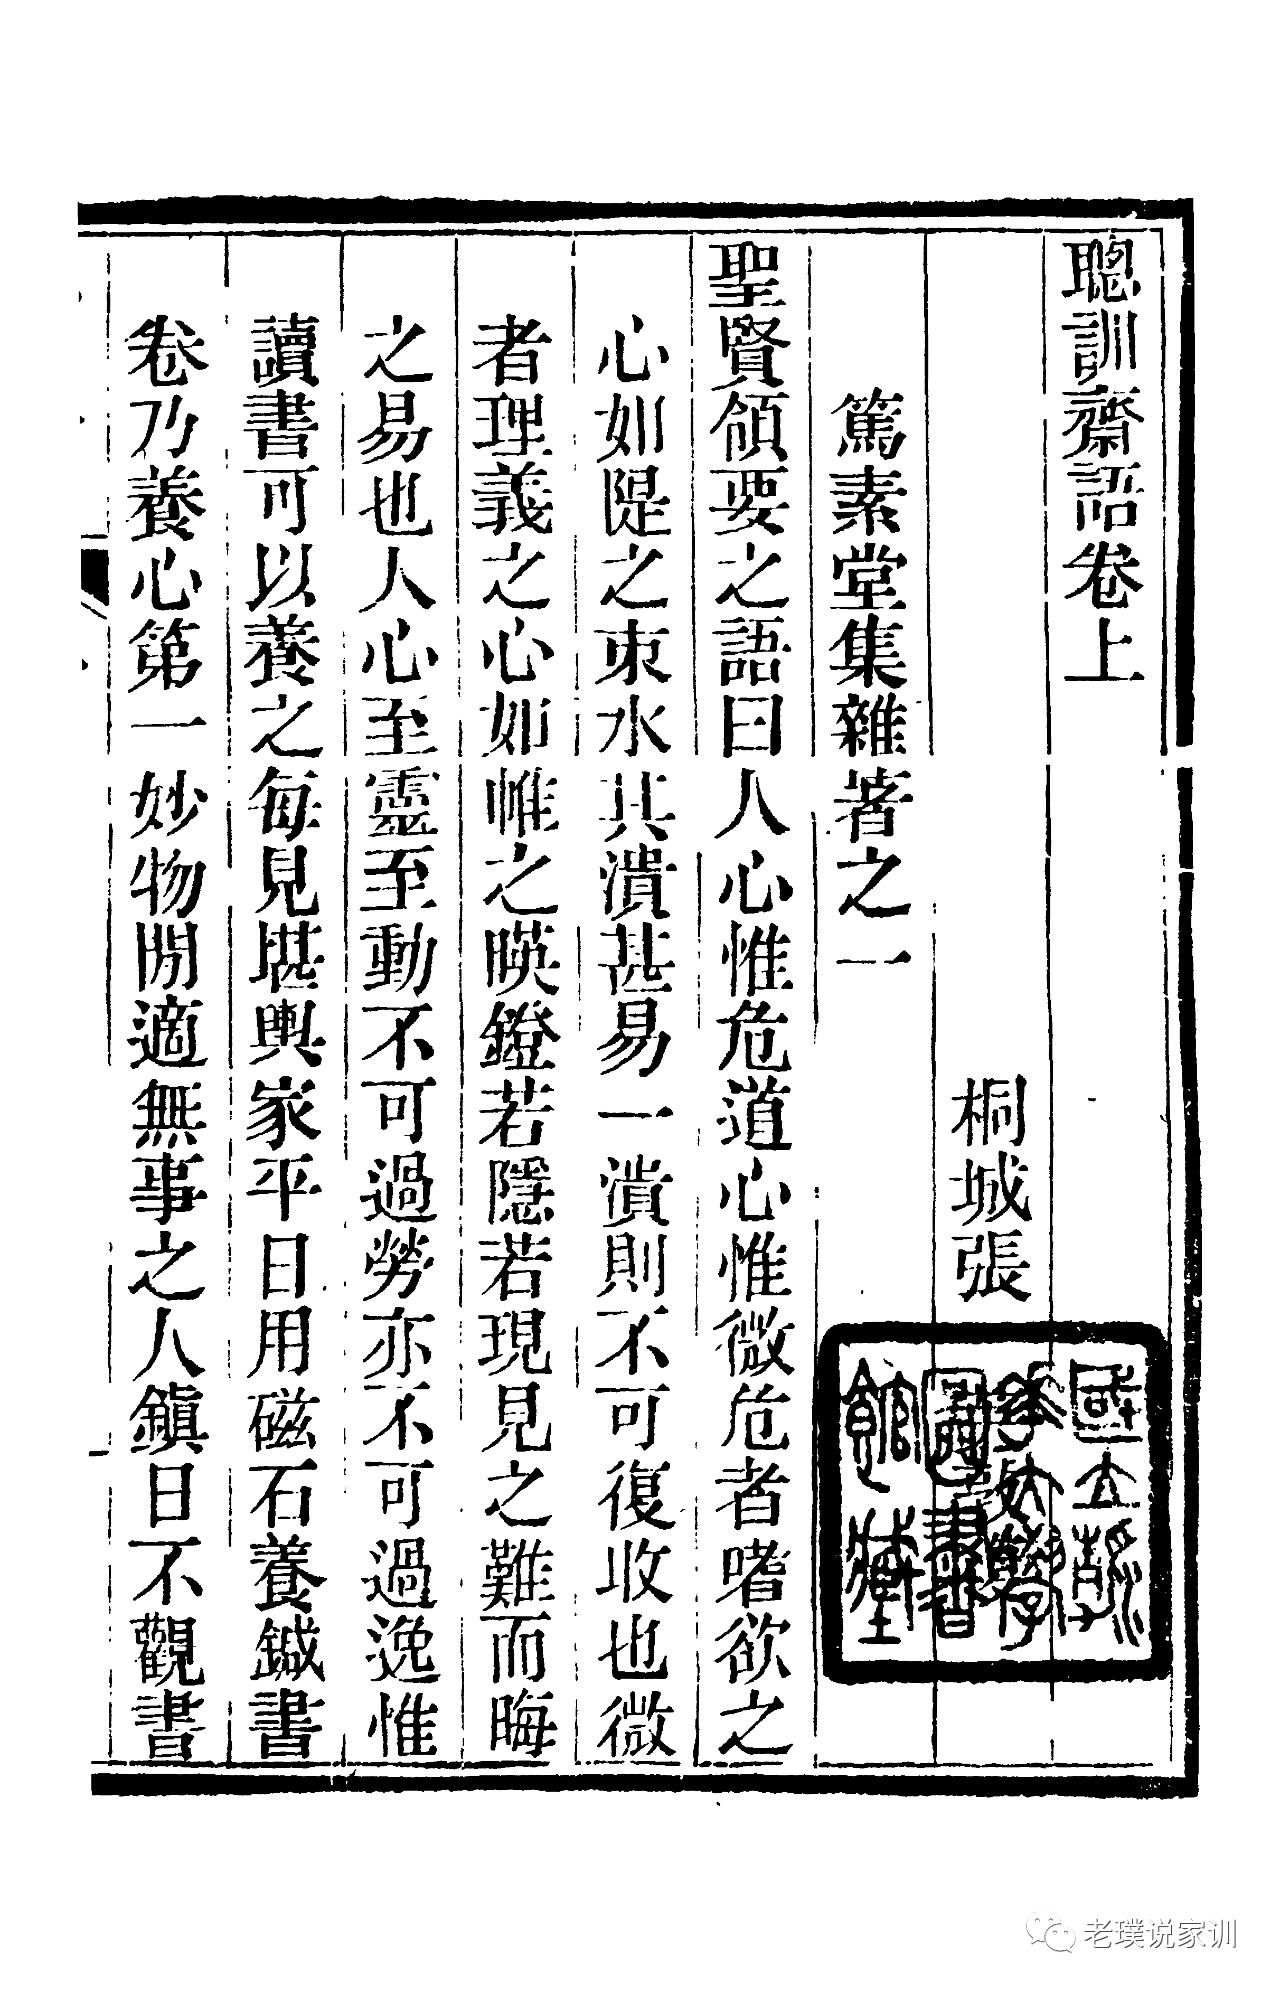 聰訓齋語卷上
桐城張
篤素堂集雜著之一
聖賢領要之語曰人心惟危道心惟微危者嗜欲之
心如隄之束水其潰甚易一潰則不可復收也微
者理義之心如帷之暎鐙若隱若現見之難而晦
之易也人心至靈至動不可過勞亦不可過逸惟
讀書可以養之每見堪輿家平日用磁石養鍼書
卷乃養心第一妙物閒適無事之人鎭日不觀書
老璞说家训